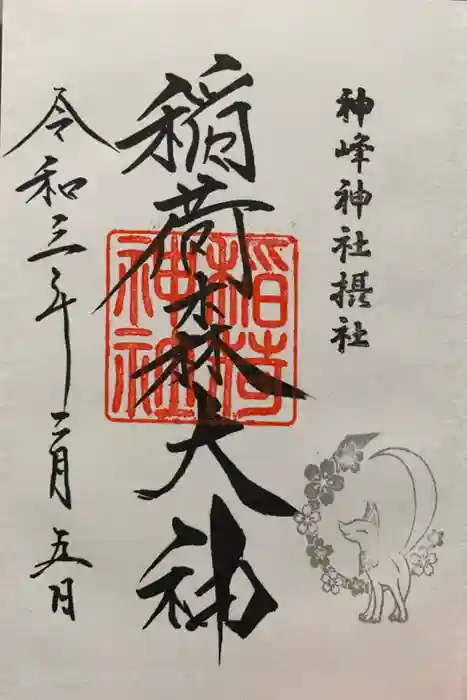 神峰神社摂社
稲荷森大神
稲荷神社
令和三年二月五日